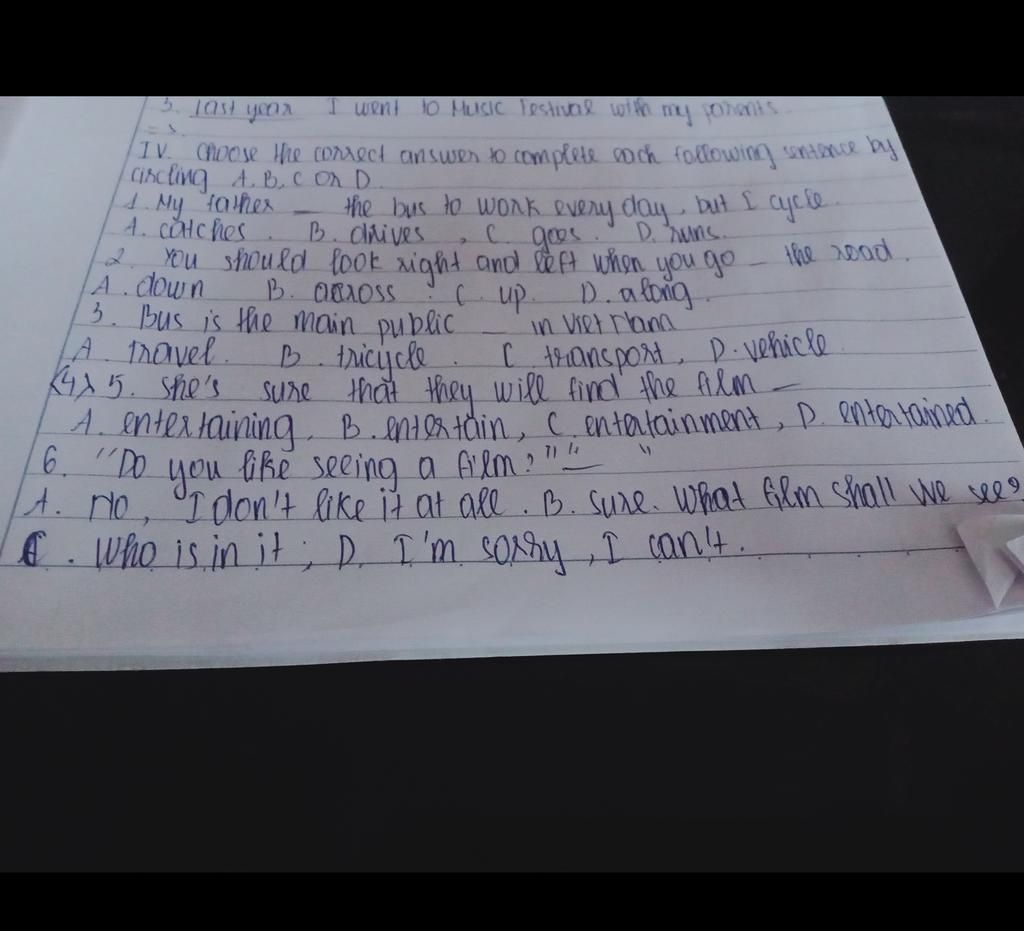 3. Last year I went to Music Festival with my parents.
= s.
IV. Choose the correct answer to complete each following sentence by
circling A, B, C or D.
1. My father _ the bus to work every day, but I cycle.
A. catches. B. drives, C. goes. D. runs.
2. You should look right and left when you go _ the road.
A. down B. across. C. up. D. along.
3. Bus is the main public _ in Viet Nam
A. travel. B. tricycle. C. transport, D. vehicle
5. She's sure that they will find the film _
A. entertaining, B. entertain, C. entertainment, D. entertained.
6. "Do you like seeing a film?" "_ "
A. No, I don't like it at all. B. Sure. What film shall we see?
C. Who is in it; D. I'm sorry, I can't.